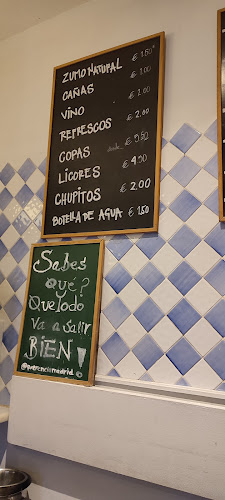 ZUMO NATURAL € 1.50
CAÑAS € 1.00
VINO € 1.00
REFRESCOS € 2.00
COPAS desde € 5.50
LICORES € 4.50
CHUPITOS € 2.00
BOTELLA DE AGUA € 1.50
Sabes
qué?
Quetodo
va a salir
BIEN!
@querenciamadrid